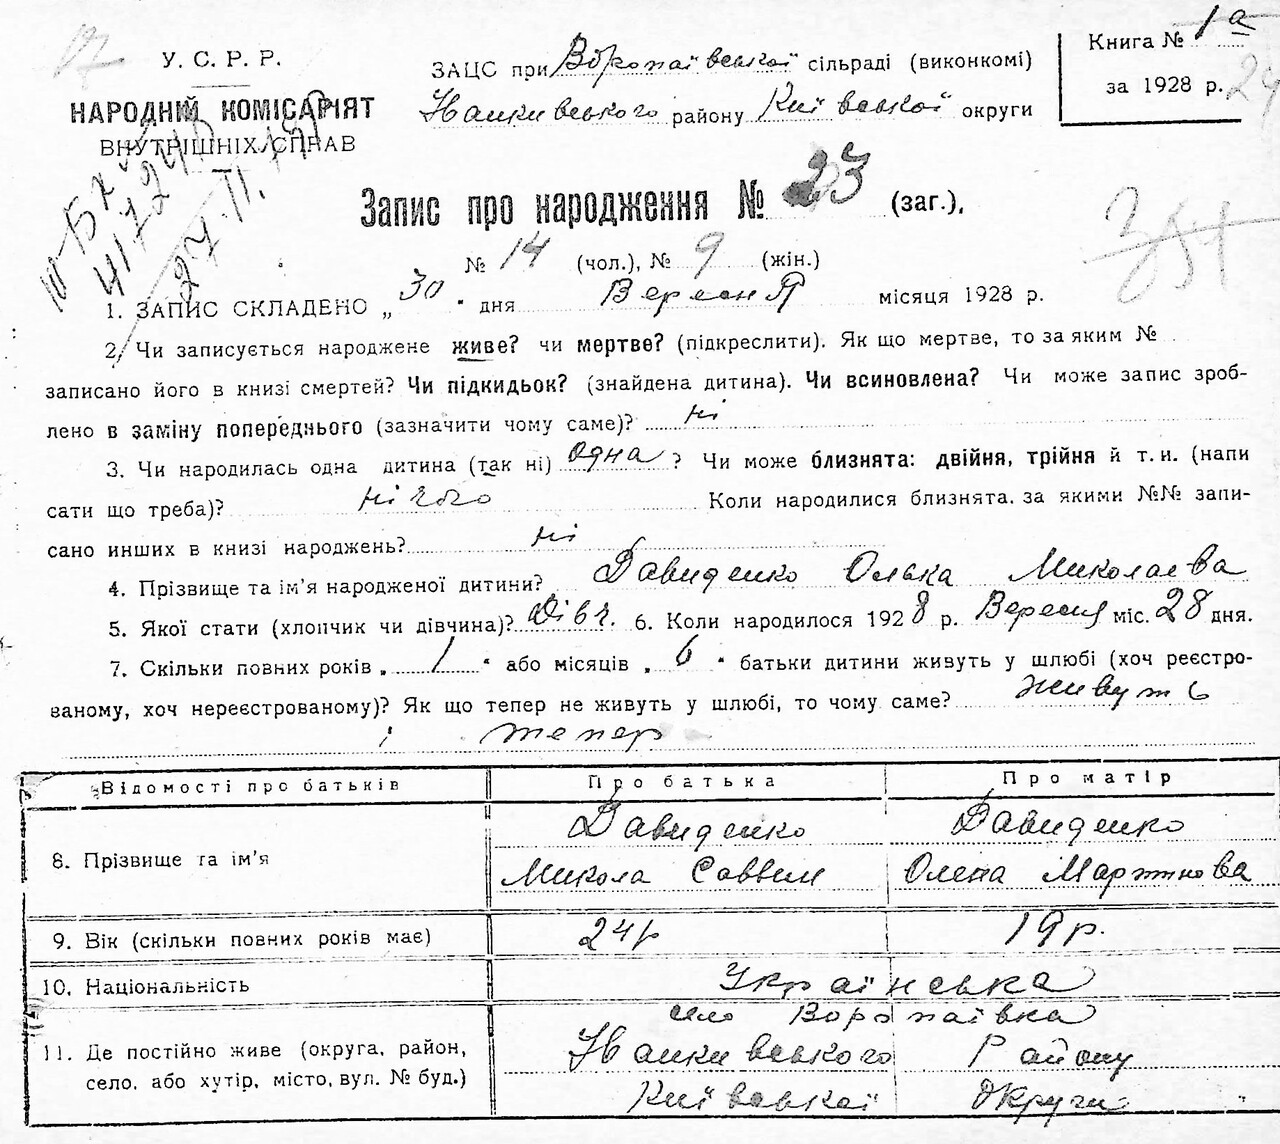 У. С. Р. Р.
НАРОДНІЙ КОМІСАРІЯТ
ВНУТРІШНІХ СПРАВ
ЗАЦС при Воропаївської сільраді (виконкомі)
району Київської округи
Книга № 1а
за 1928 р. 24
Запис про народження № 23 (заг.),
№ 14 (чол.), № 9 (жін.)
351
1. ЗАПИС СКЛАДЕНО „ 30 " дня Вересня місяця 1928 р.
2. Чи записується народжене живе? чи мертве? (підкреслити). Як що мертве, то за яким №
записано його в книзі смертей? Чи підкидьок? (знайдена дитина). Чи всиновлена? Чи може запис зроб-
лено в заміну попереднього (зазначити чому саме)? ні
3. Чи народилась одна дитина (так ні) одна ? Чи може близнята: двійня, трійня й т. и. (напи
сати що треба)? нічого Коли народилися близнята, за якими №№ запи-
сано инших в книзі народжень? ні
4. Прізвище та ім'я народженої дитини? Давиденко Олька Миколаєва
5. Якої стати (хлопчик чи дівчина)? Дівч. 6. Коли народилося 1928 р. Вересня міс. 28 дня.
7. Скільки повних років „ 1 " або місяців „ 6 " батьки дитини живуть у шлюбі (хоч реєстро-
ваному, хоч нереєстрованому)? Як що тепер не живуть у шлюбі, то чому саме? живуть
і тепер
Відомості про батьків Про батька Про матір
8. Прізвище та ім'я
Давиденко Давиденко
Микола Саввин Олена Мартинова
9. Вік (скільки повних років має) 24р 19р.
10. Національність Українська
11. Де постійно живе (округа, район,
село, або хутір, місто, вул. № буд.)
село Воропаївка
Району
Київської Округи